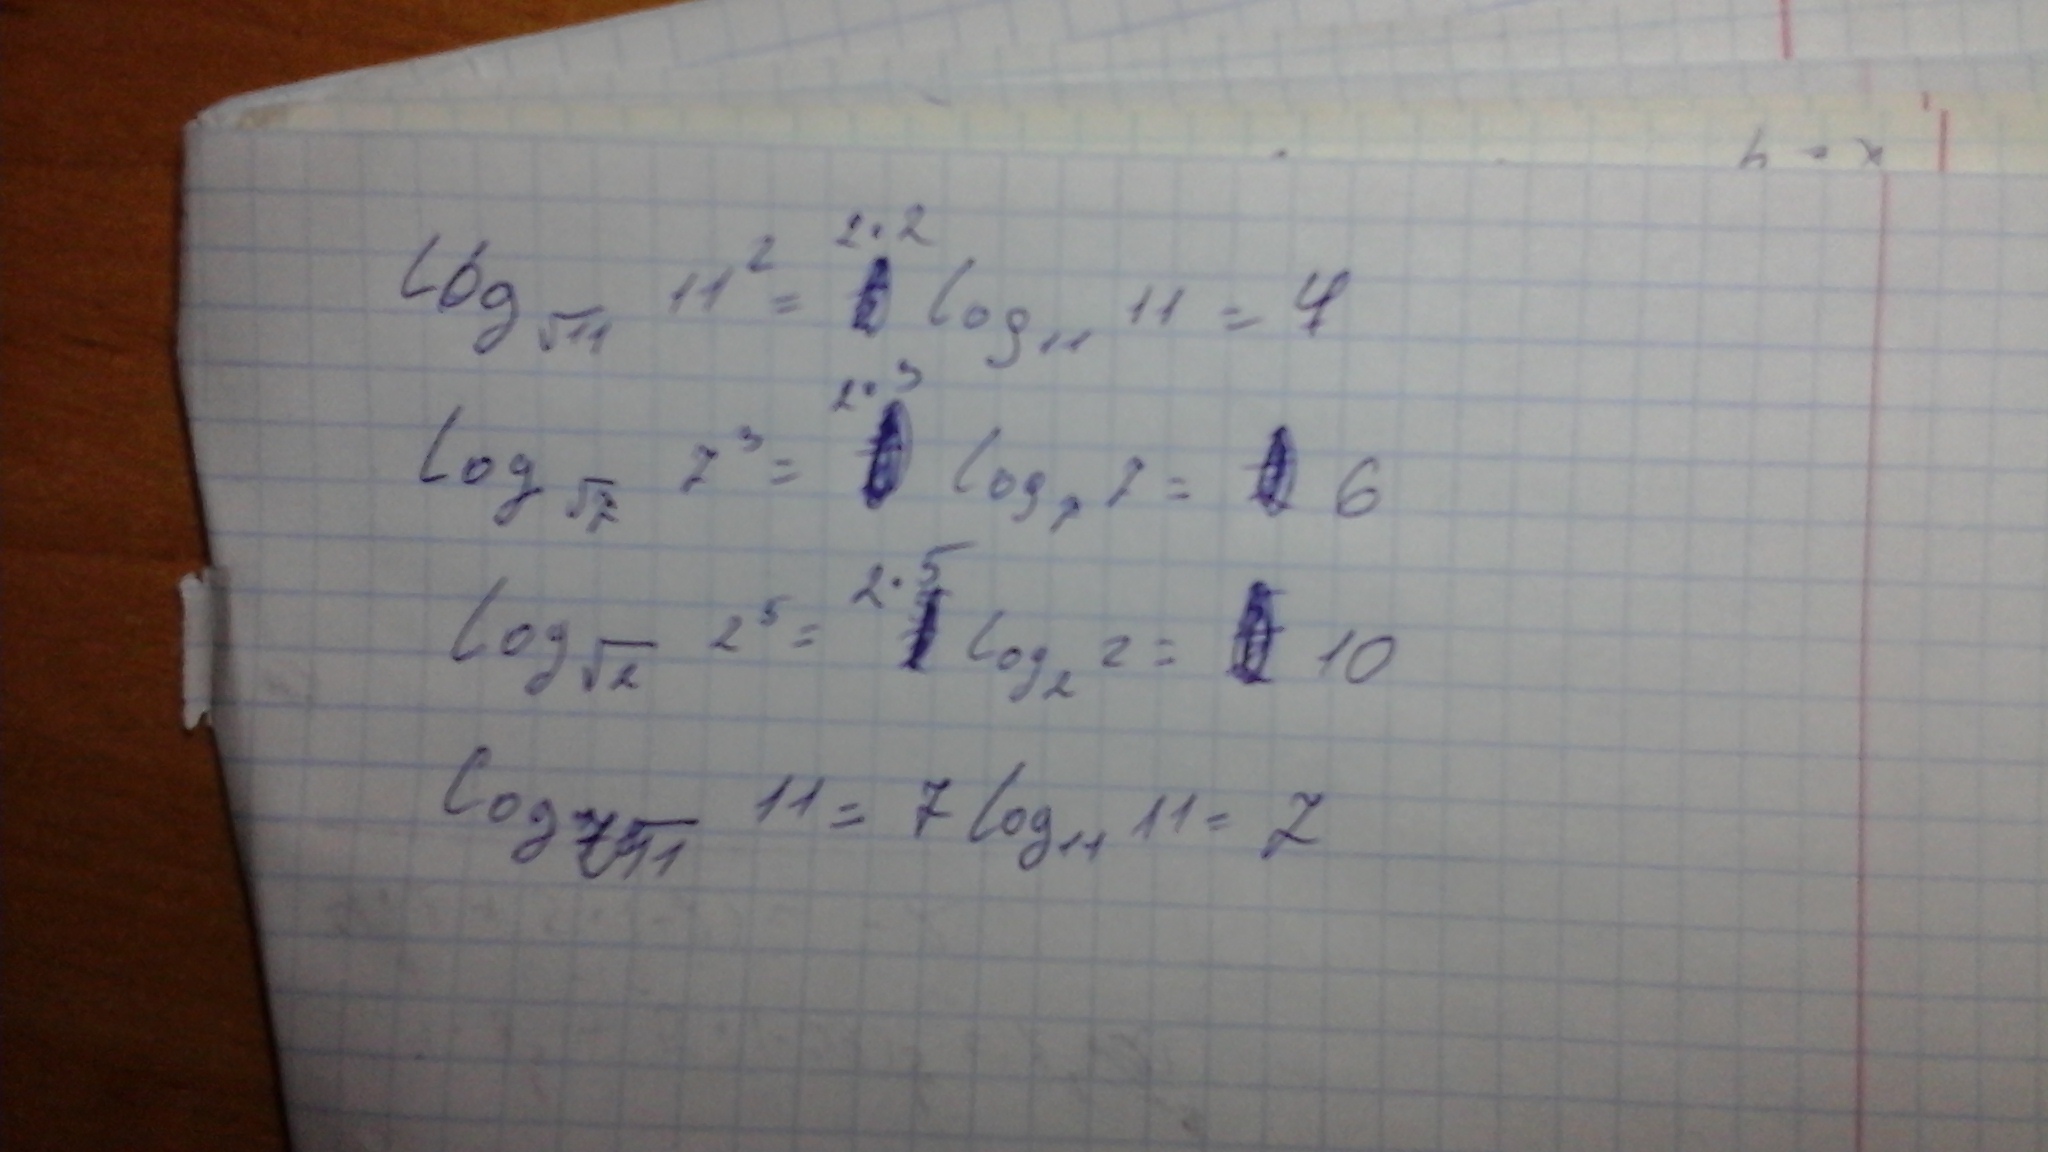 log_√11 11² = 2·2 log₁₁ 11 = 4
log_√7 7³ = 2·3 log₇ 7 = 6
log_√2 2⁵ = 2·5 log₂ 2 = 10
log_⁷√11 11 = 7 log₁₁ 11 = 7